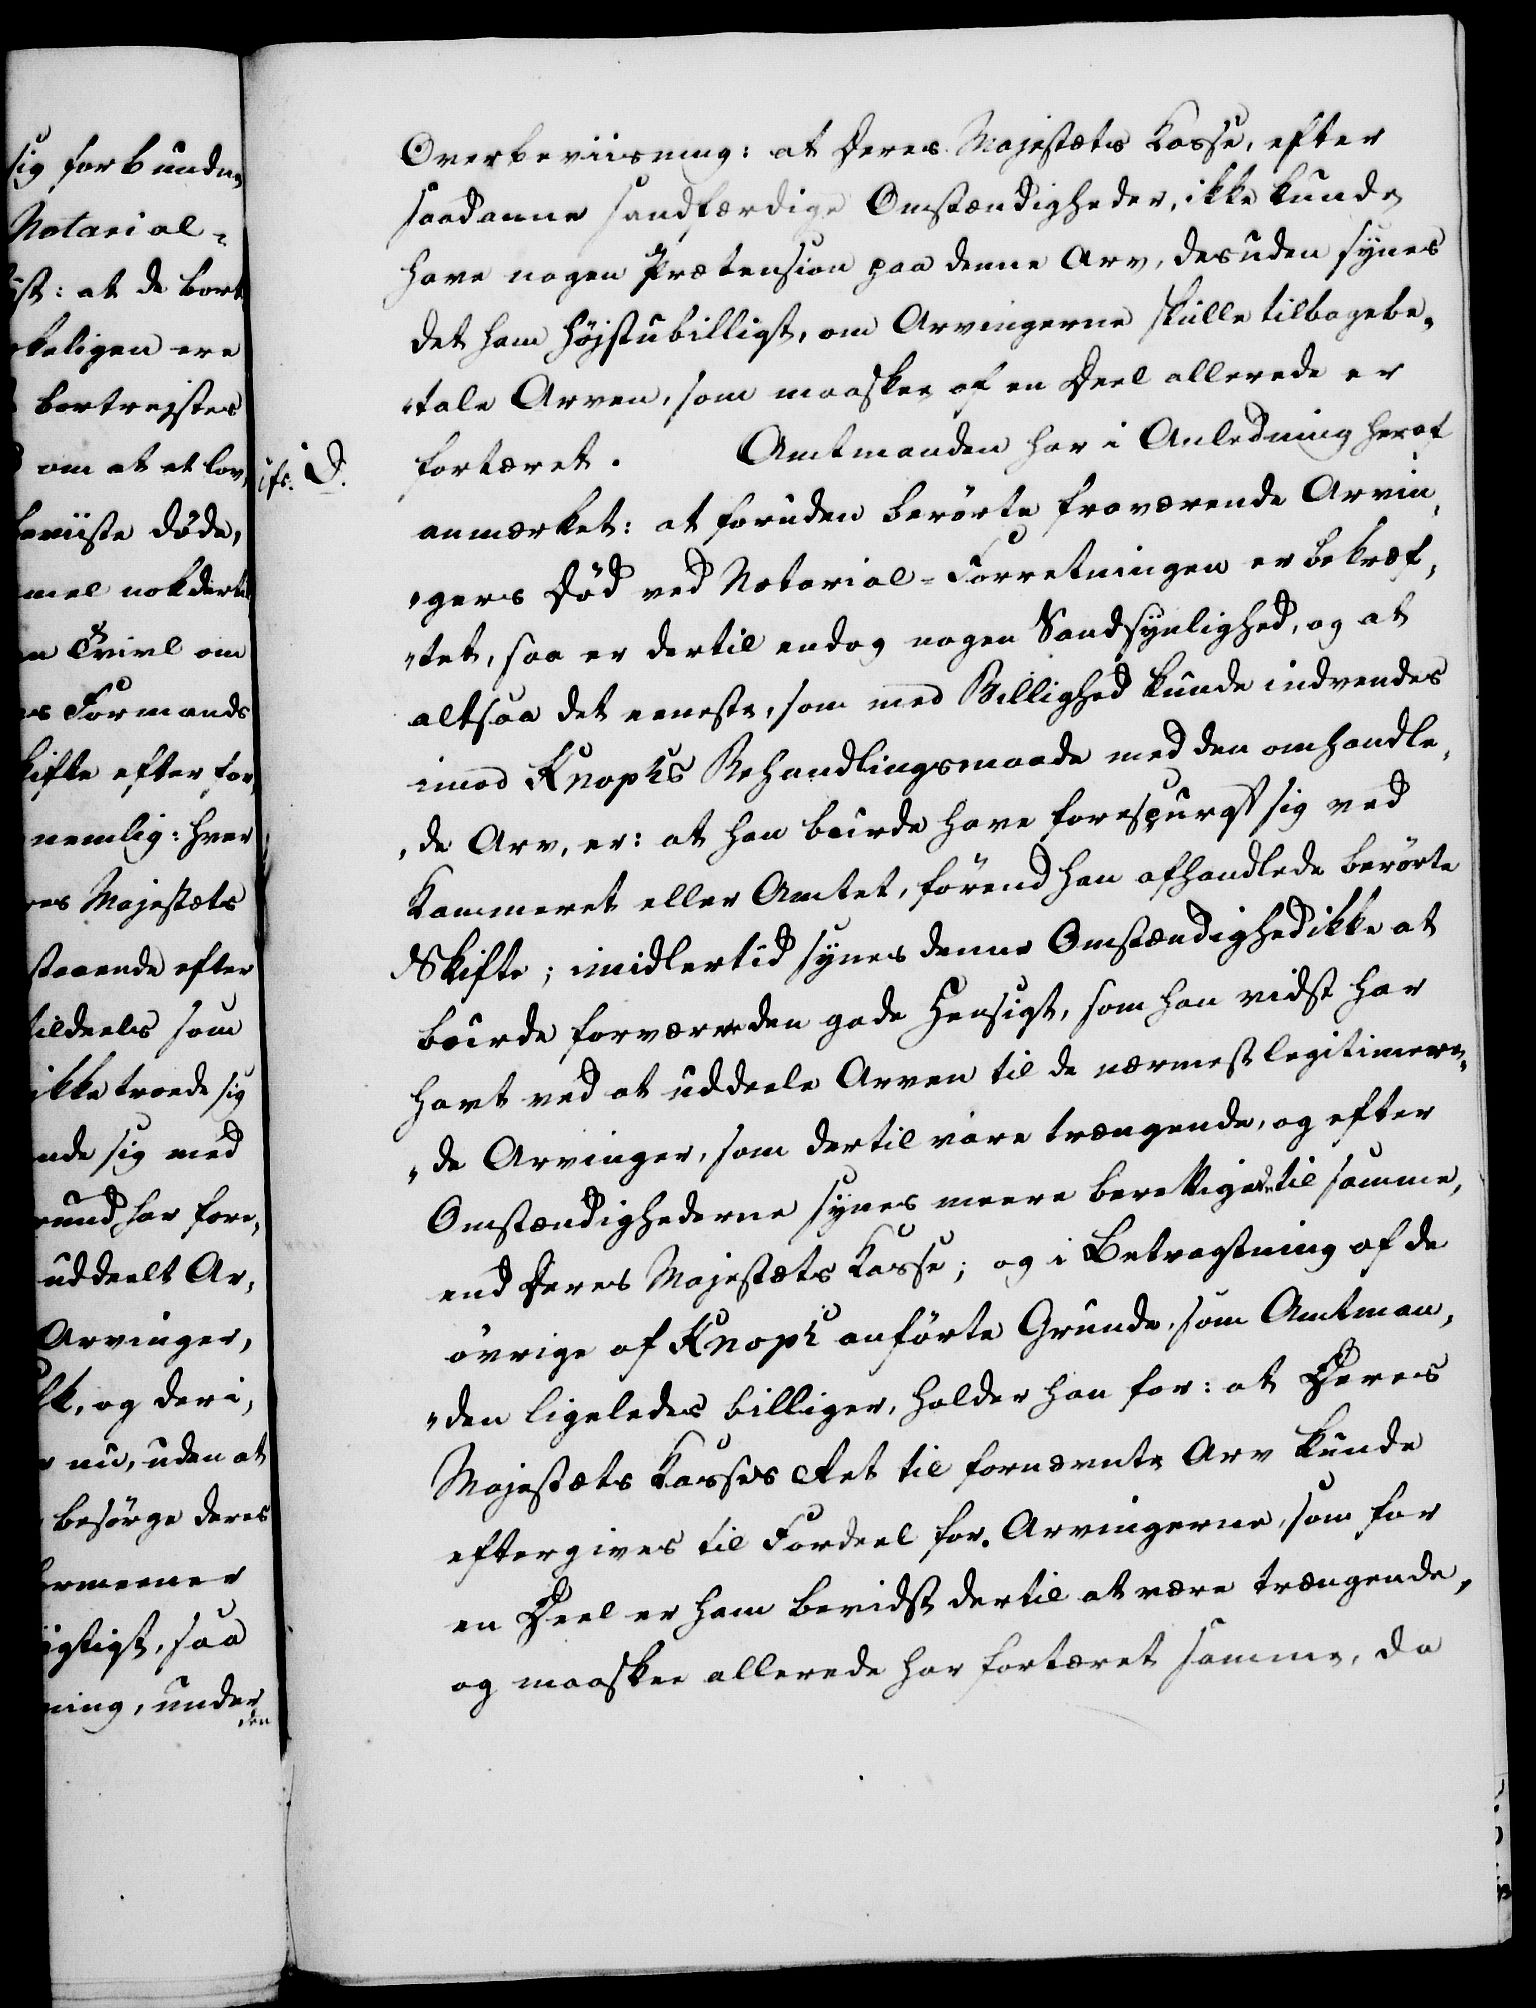 sig forbundne
Notarial=
st: at de bort
keligen ere
bortrejstes
om at et lov,
beviiste døde,
mel nok dertil
n Tvivl om
s Formands
kifte efter for,
nemlig: hver
res Majestæts
staaende efter
tildeels som
ikke troede sig
nde sig med
rund har fore,
uddeelt Ar,
Arvinger,
lk, og der i,
r nu, uden at
besørge deres
ormeener
igtigt, saa
ning, under
den
Overbeviisning: at Deres Majestæts Kasse, efter
saadanne sandfærdige Omstændigheder, ikke kunde
have nogen Prætension paa denne Arv, desuden synes
det ham højstubilligt, om Arvingerne skulle tilbagebe,
"tale Arven, som maaskee af en Deel allerede er
cfr. D. fortæret. Amtmanden har i Anledning heraf
anmærket: at foruden berørte fraværende Arvin,
"gers Død ved Notarial=Forretningen er bekræf,
"tet, saa er dertil endog nogen Sandsynlighed, og at
altsaa det eeneste, som med Billighed kunde indvendes
imod Knophs Behandlingsmaade med den omhandle,
"de Arv, er: at han burde have forespurgt sig ved
Kammeret eller Amtet, førend han afhandlede berørte
Skifte; imidlertid synes denne Omstændighed ikke at
burde forværre den gode Hensigt, som han vidst har
havt ved at uddeele Arven til de nærmest legitimere,
"de Arvinger, som dertil vare trængende, og efter
Omstændighederne synes meere berettigede til samme,
end Deres Majestæts Kasse; og i Betragtning af de
øvrige af Knoph anførte Grunde, som Amtman,
"den ligeledes billiger, holder han for: at Deres
Majestæts Kasses Ret til fornævnte Arv kunde
eftergives til Fordeel for Arvingerne, som for
en Deel er ham bevidst dertil at være trængende,
og maaskee allerede har fortæret samme, da